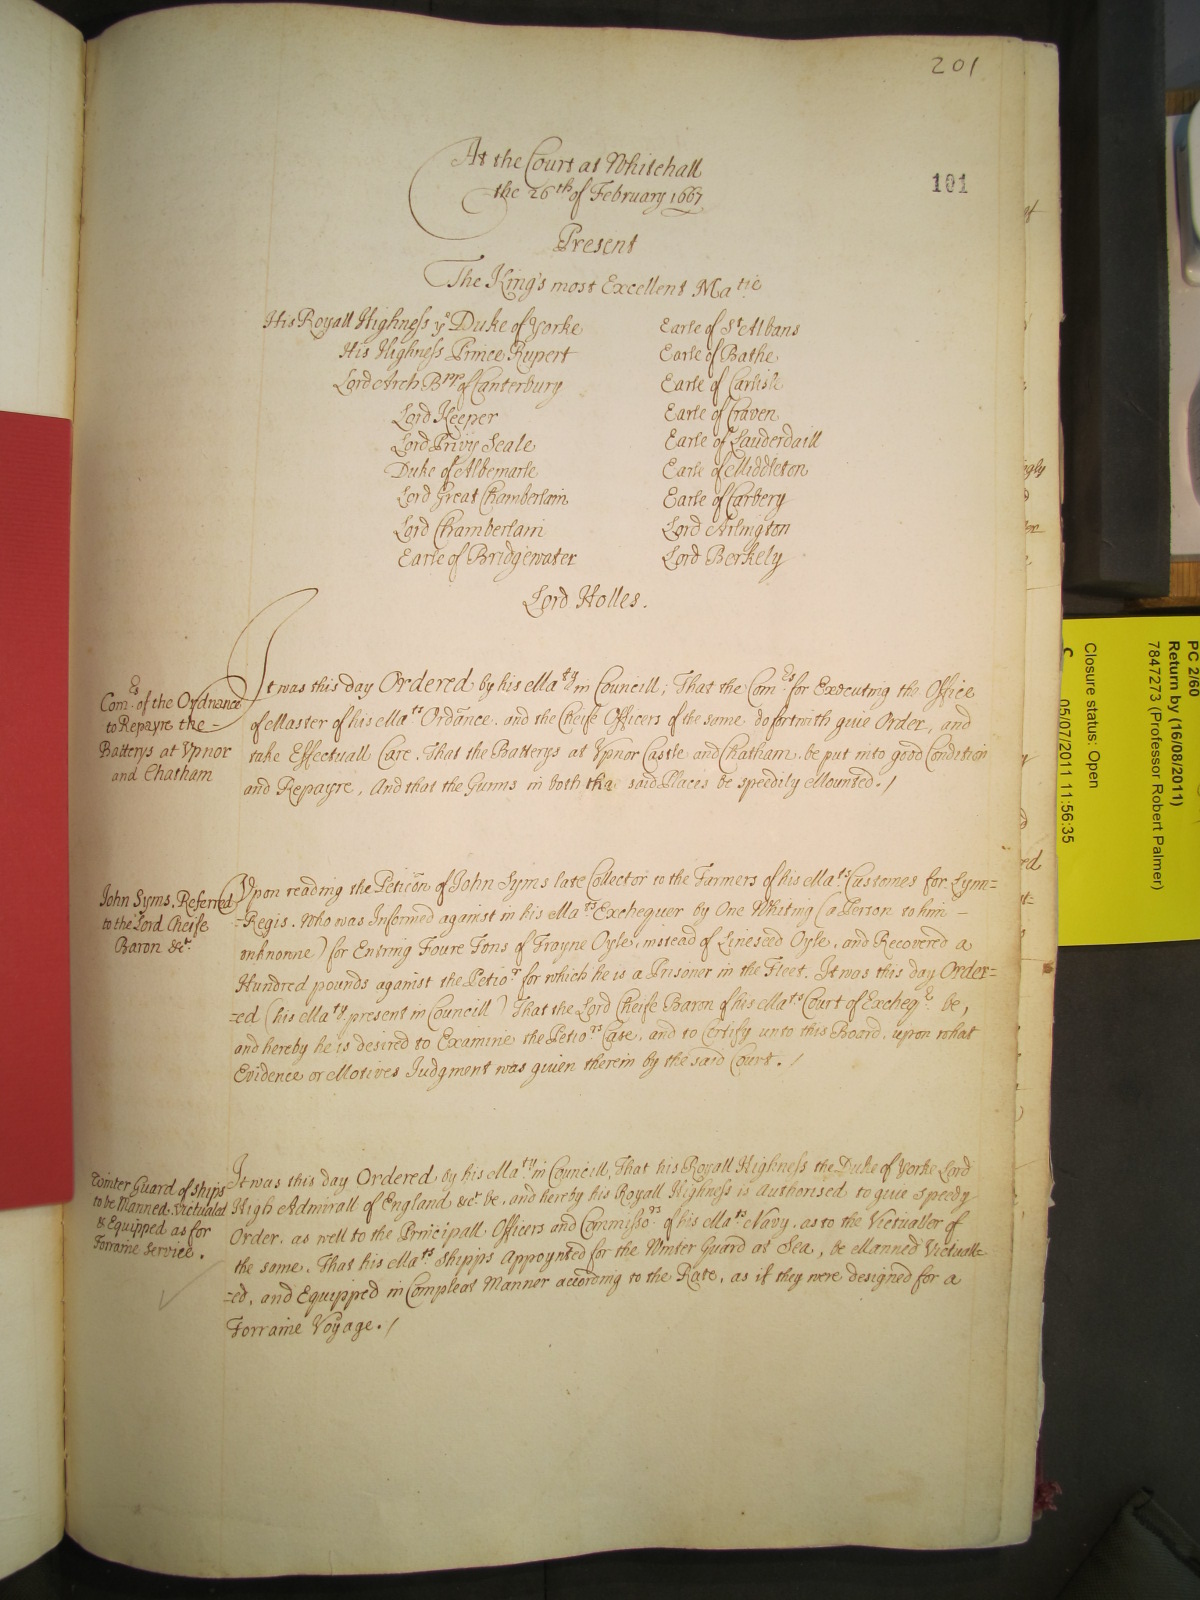 201
101
At the Court at Whitehall
the 26th of February 1667
Present
The King's most Excellent Matie
His Royall Highness ye Duke of Yorke
His Highness Prince Rupert
Lord Arch Bpp of Canterbury
Lord Keeper
Lord Privy Seale
Duke of Albemarle
Lord Great Chamberlain
Lord Chamberlain
Earle of Bridgewater
Earle of St Albans
Earle of Bathe
Earle of Carlisle
Earle of Craven
Earle of Lauderdaill
Earle of Middleton
Earle of Carbery
Lord Arlington
Lord Berkely
Lord Holles.
Comrs of the Ordnance
to Repayre the -
Batterys at Upnor
and Chatham
It was this day Ordered by his Maty in Councill; That the Comrs for Executing the Office
of Master of his Mats Ordance. and the Cheife Officers of the same do fortwith giue Order, and
take Effectuall Care. That the Batterys at Upnor Castle and Chatham. be put into good Condition
and Repayre, And that the Gunns in both the said Places be speedily Mounted./
John Syms. Referred
to the Lord Cheife
Baron &ct.
Upon reading the Peticon of John Syms late Collector to the Farmers of his Mats Customes for Lynn=
=Regis. Who was Informed against in his Mats Exchequer by One Whiting (a Person to him -
unknonne) for Entring Foure Tons of Trayne Oyle, instead of Lineseed Oyle, and Recovered a
Hundred pounds against the Petior for which he is a Prisoner in the Fleet. It was this day Order=
=ed (his Maty present in Councill) That the Lord Cheife Baron of his Mats Court of Excheqr be,
and hereby he is desired to Examine the Petiors Case, and to Certify unto this Board, upon what
Evidence or Motives Judgment was giuen therein by the said Court./
Winter Guard of Ships
to be Manned, Victualed
& Equipped as for
Forraine Service.
It was this day Ordered by his Maty in Councill, That his Royall Highness the Duke of Yorke Lord
High Admirall of England &ct be, and hereby his Royall Highness is Authorised to giue speedy
Order, as well to the Principall Officers and Commissors of his Mats Navy, as to the Victualler of
the same. That his Mats Shipps Appoynted for the Winter Guard at Sea, be Manned Victuall=
=ed, and Equipped in Compleat Manner according to the Rate, as if they were designed for a
Forraine Voyage./
PC 2/60
Return by (16/08/2011)
7847273 (Professor Robert Palmer)
Closure status: Open
05/07/2011 11:56:35